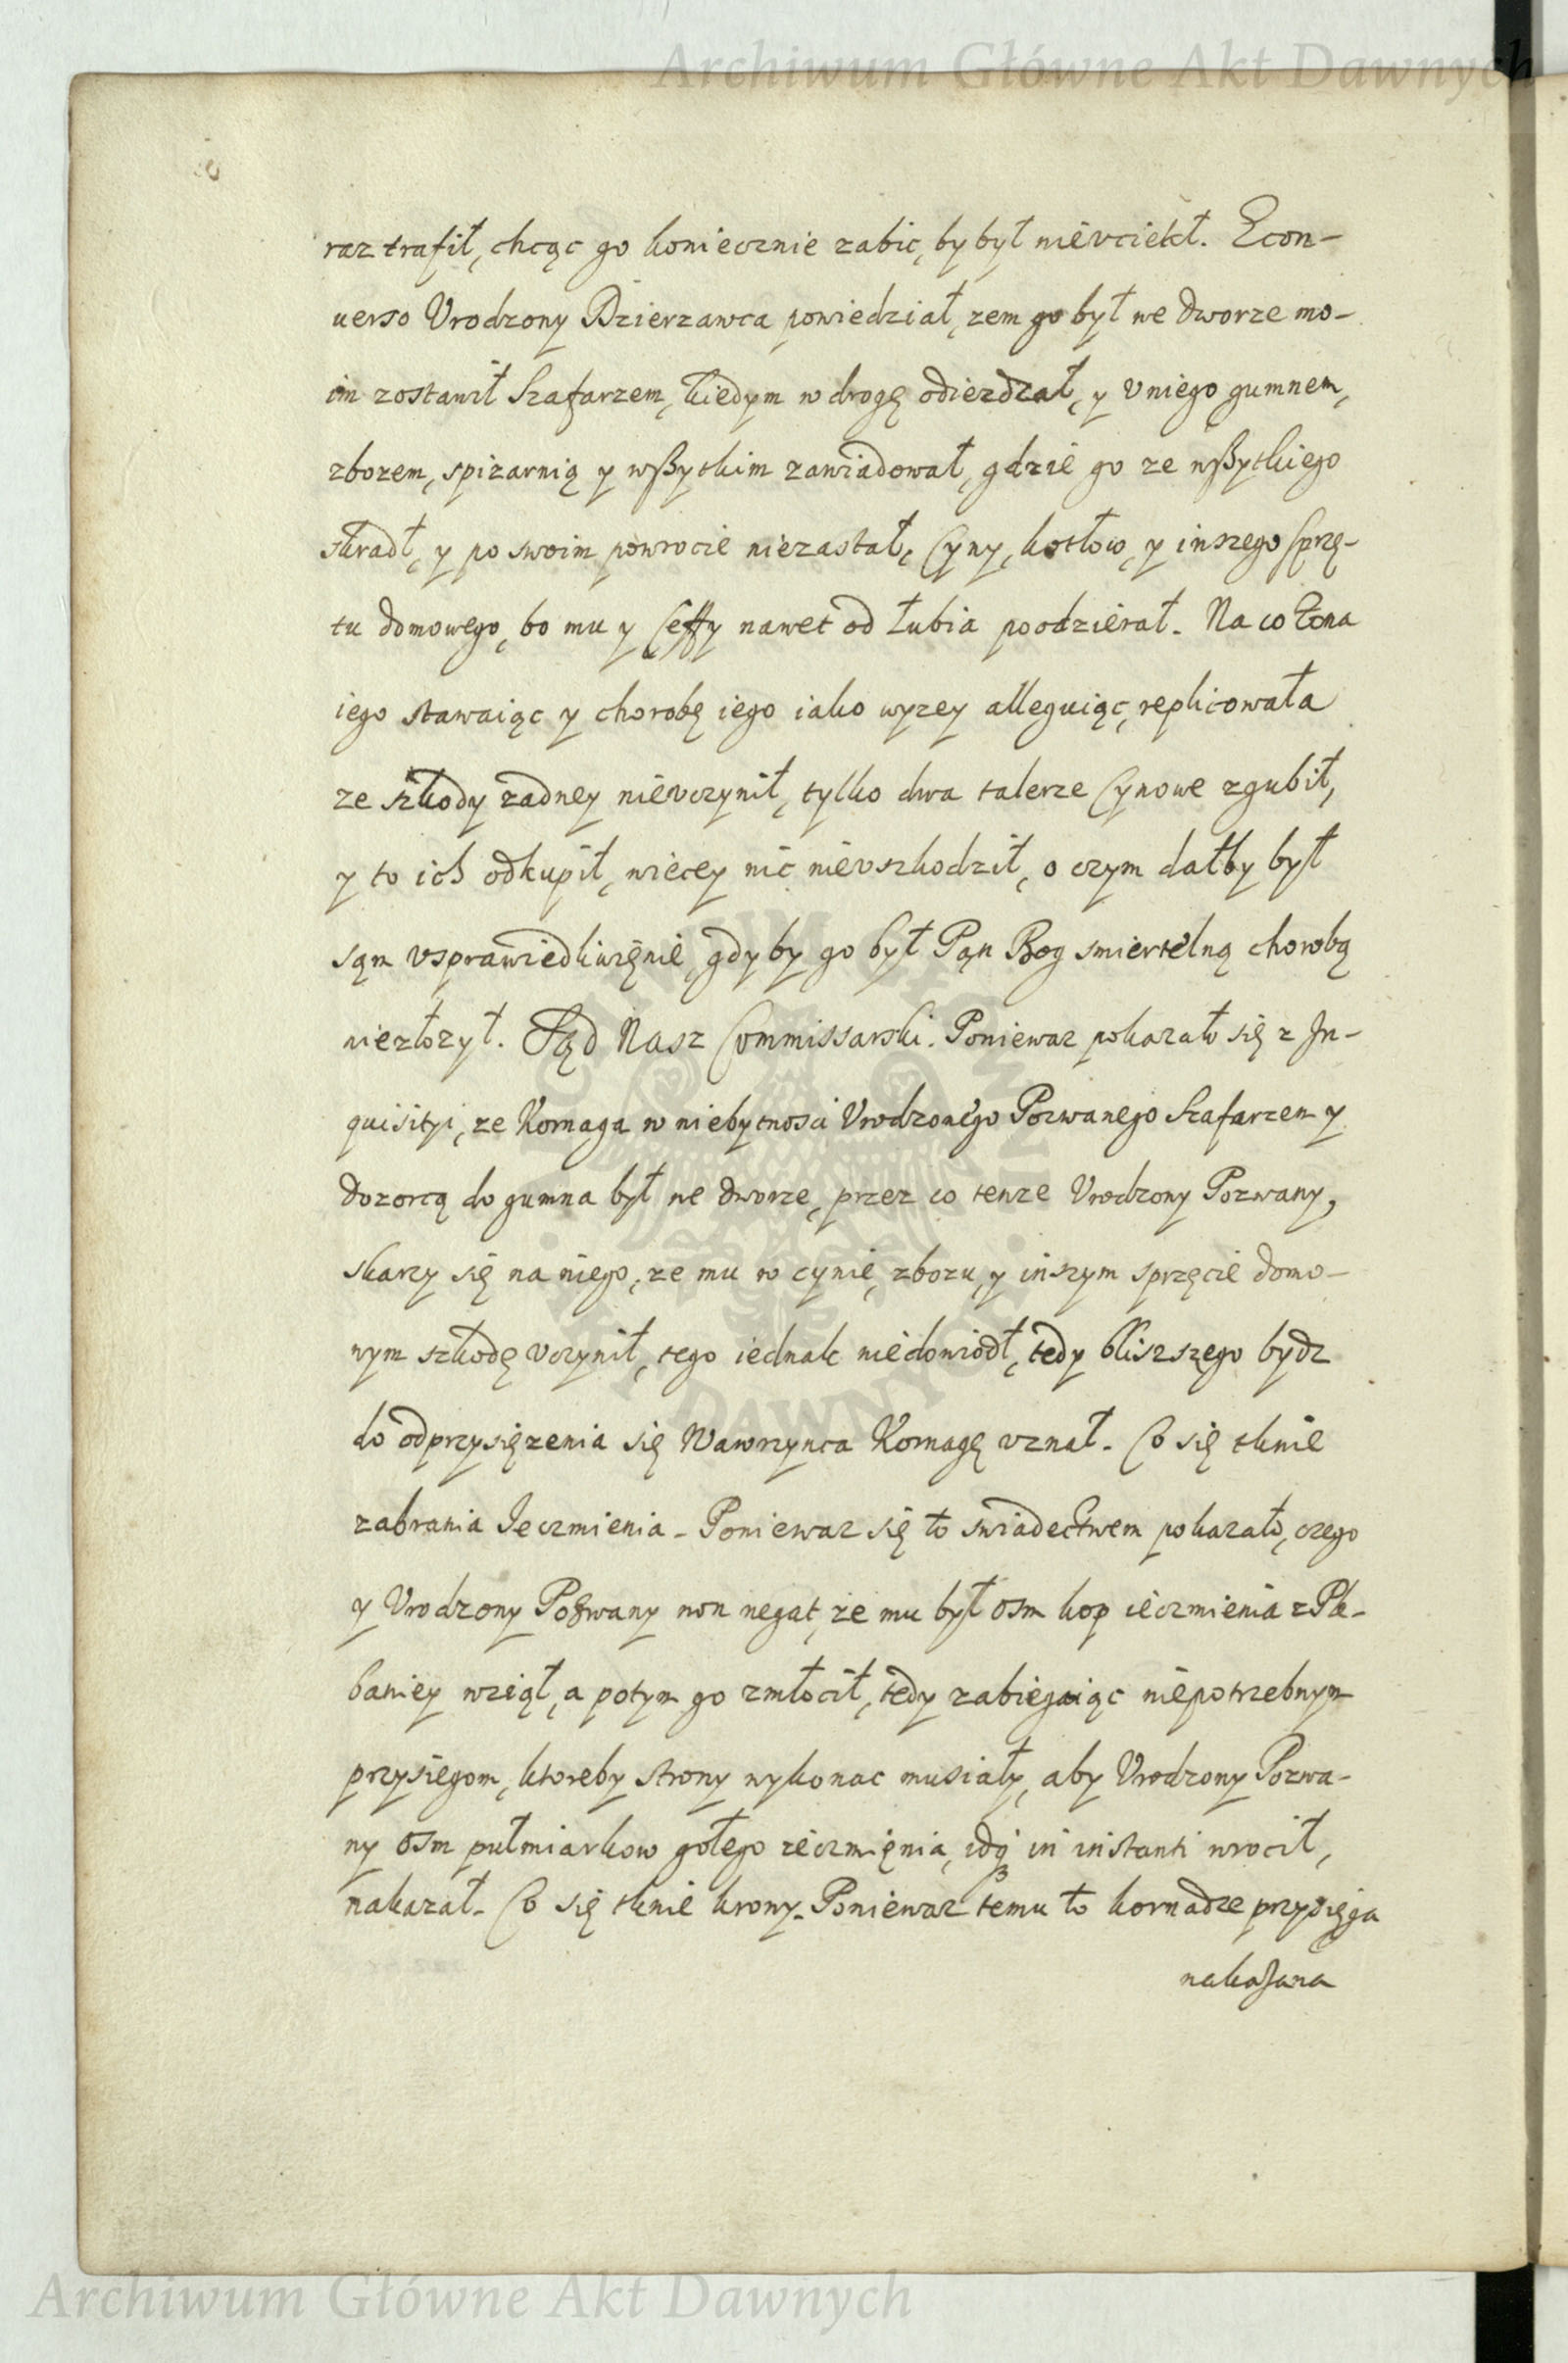 Archiwum Główne Akt Dawnych
raz trafił, chcąc go koniecznie zabic, by był nievciekł. Econ-
uerso Vrodzony Dzierzawca powiedział, zem go był we dworze mo-
im zostawił Szafarzem, kiedym w drogę odiezdzał, y v niego gumnem,
zbozem, spizarnią y wßytkim zawiadował, gdzie go ze wßytkiego
skradł, y po swoim powrocie niezastał, Cyny, kotłow, y inszego sprzę-
tu domowego, bo mu y Ceffy nawet od Łubia poodzierał. Na co Żona
iego stawaiąc y chorobę iego iako wyzey alleguiąc, replicowała
ze szkody zadney nievczynił, tylko dwa talerze Cynowe zgubił,
y to ich odkupił, wiecey nic nievszkodził, o czym dałby był
sąm vsprawiedliwięnie, gdyby go był Pąn Bog smiertelną chorobą
niezłozył. Sąd Nasz Commissarski. Poniewaz pokazało się z In-
quisityi, ze Kornaga w niebytnosci Vrodzonego Pozwanego Szafarzem y
dozorcą do gumna był we dworze, przez co tenze Vrodzony Pozwany,
skarzy się na niego, ze mu w cynie, zbozu, y inszym sprzęcie domo-
wym szkodę vczynił, tego iednak niedowiodł, tedy bliszszego bydz
do odprzysięzenia się Wawrzynca Kornagę vznał. Co się tknie
zabrania Ieczmienia - Poniewaz się to swiadectwem pokazało, czego
y Vrodzony Pozwany non negat, ze mu był osm kop ieczmienia z Ple-
baniey wziął, a potym go zmłocił, tedy zabiegaiąc niepotrzebnym
przysiegom, ktoreby strony wykonac musiały, aby Vrodzony Pozwa-
ny osm pułmiarkow gołego ieczmięnia, idq3 in instanti wrocił,
nakazał. Co się tknie krowy. Poniewaz temu to kornadze przysięga
nakazana
Archiwum Główne Akt Dawnych